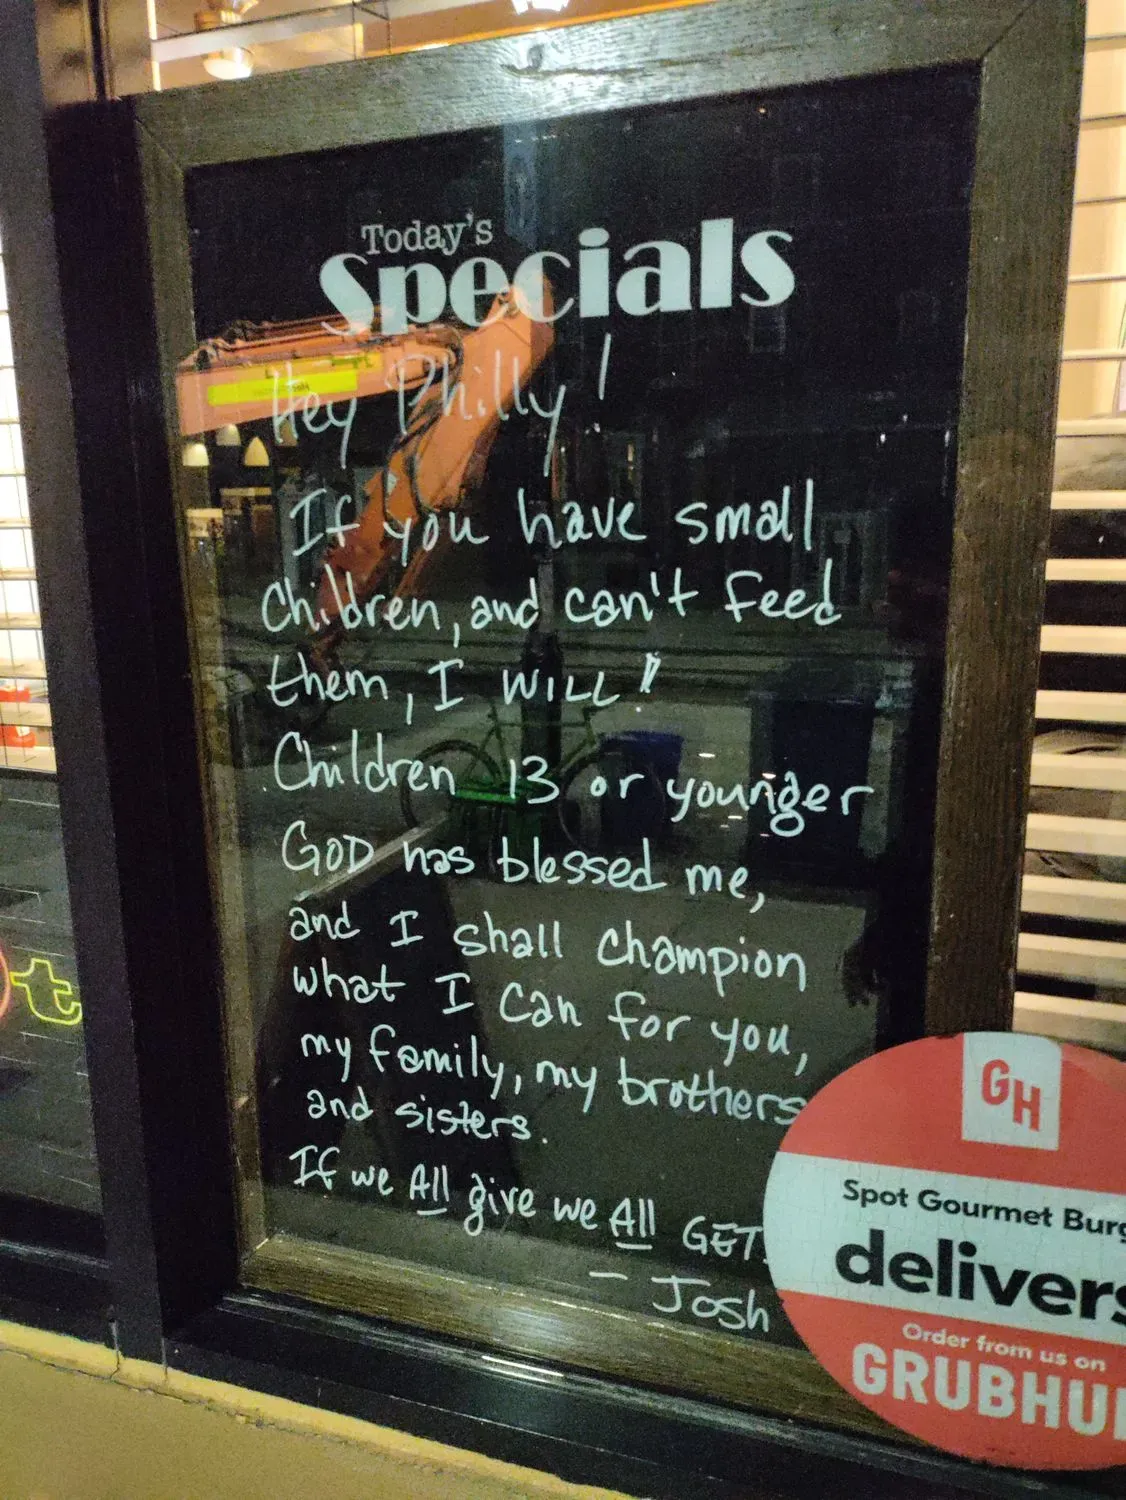 Today's
Specials
Hey Philly!
If you have small
Children, and can't feed
them, I WILL!!
Children 13 or younger
GOD has blessed me,
and I shall champion
what I can for you,
my family, my brothers
and sisters.
If we All give we All GET!
- Josh
GH
Spot Gourmet Burg
delivers
Order from us on
GRUBHU
t